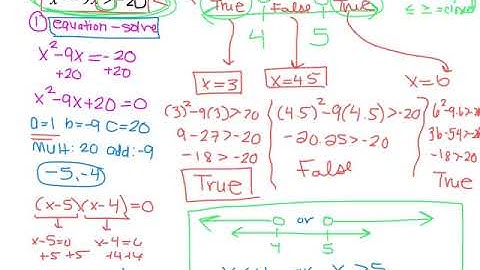 > -20
True False True
4 5
≤ ≥ = closed
① equation - solve
x²-9x = -20
+20 +20
x²-9x+20=0
a=1 b=-9 c=20
Mult: 20 add: -9
-5, -4
(x-5)(x-4)=0
x-5=0 x-4=0
+5 +5
x=3
(3)²-9(3)>-20
9-27>-20
-18>-20
True
x=4.5
(4.5)²-9(4.5)>-20
-20.25>-20
False
x=6
6²-9·6>-20
36-54>-20
-18>-20
True
or
4 5
or x>5